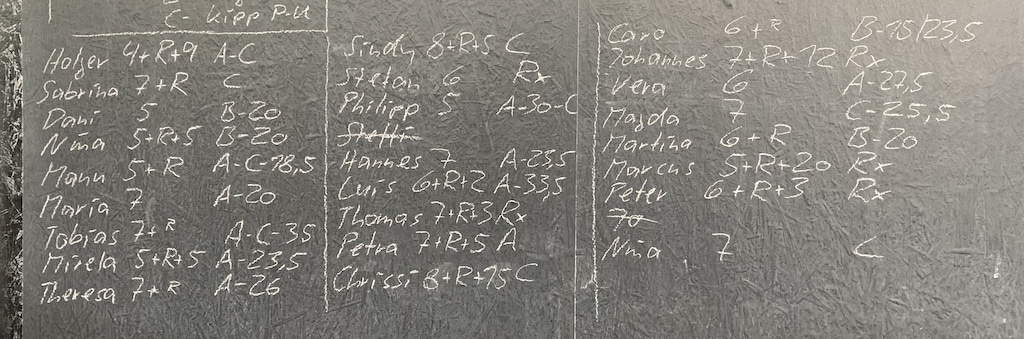 C- Kipp P-U
Holger 4+R+9 A-C
Sabrina 7+R C
Dani 5 B-20
Nina 5+R+5 B-20
Mann 5+R A-C-18,5
Maria 7 A-20
Tobias 7+R A-C-35
Mirela 5+R+5 A-23,5
Theresa 7+R A-26
Sindy 8+R+5 C
Stefan 6 Rx
Philipp 5 A-30-C
Steffi
Hannes 7 A-23,5
Luis 6+R+2 A-33,5
Thomas 7+R+3 Rx
Petra 7+R+5 A
Chrissi 8+R+15 C
Caro 6+R B-15/23,5
Johannes 7+R+12 Rx
Vera 6 A-27,5
Magda 7 C-25,5
Martina 6+R B-20
Marcus 5+R+20 Rx
Peter 6+R+3 Rx
Jo
Nina 7 C